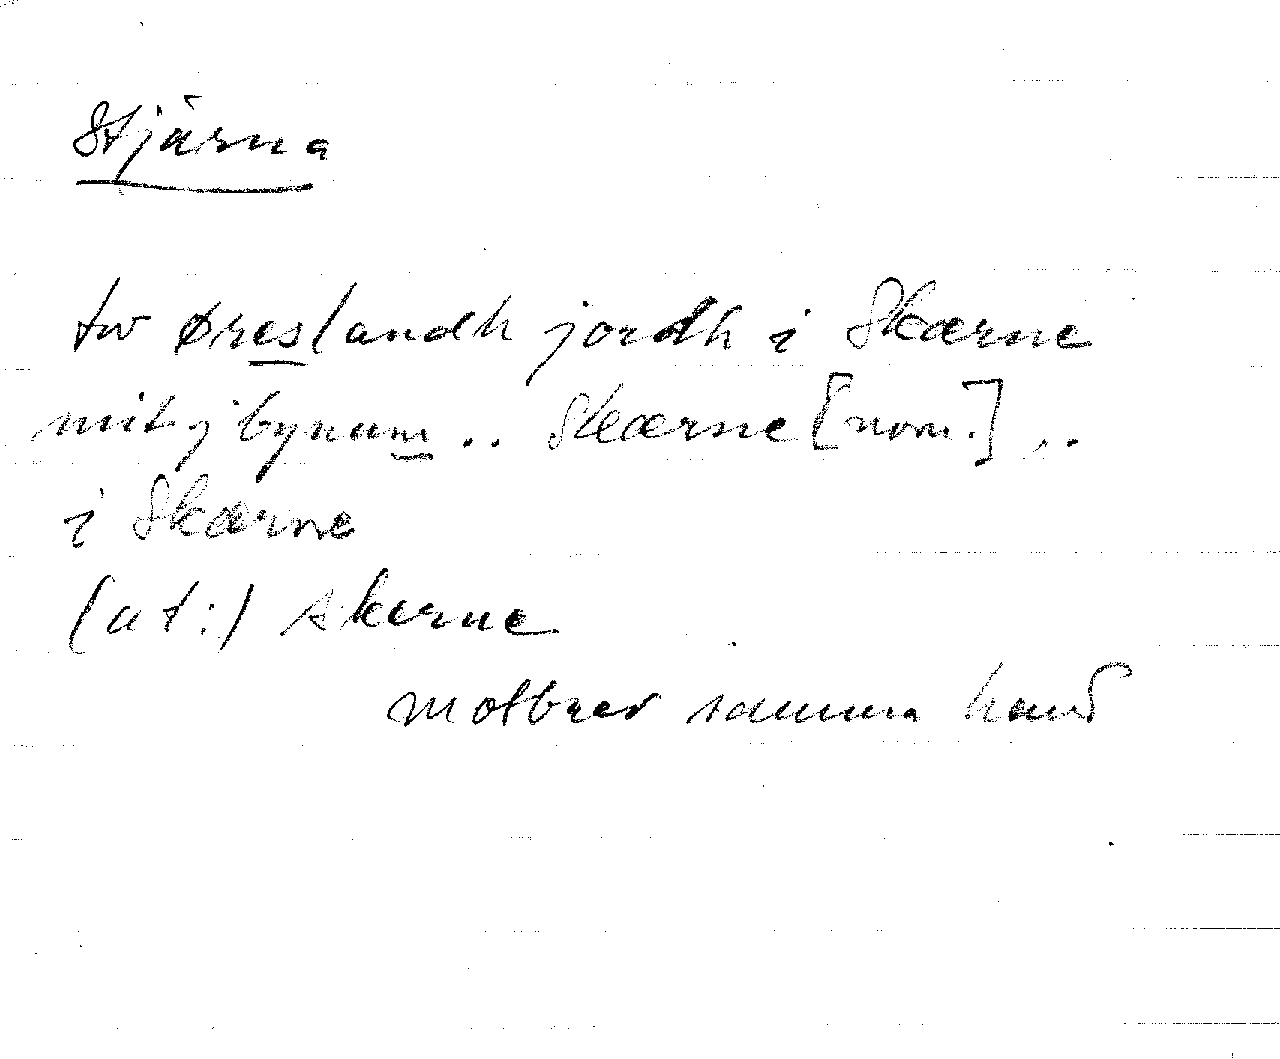 Stjärna
tw øreslandh jordh i Skærne
mitj bynum .. Skærne [nom.] ..
i Skærne
(at:) skerne
motbner samma hand